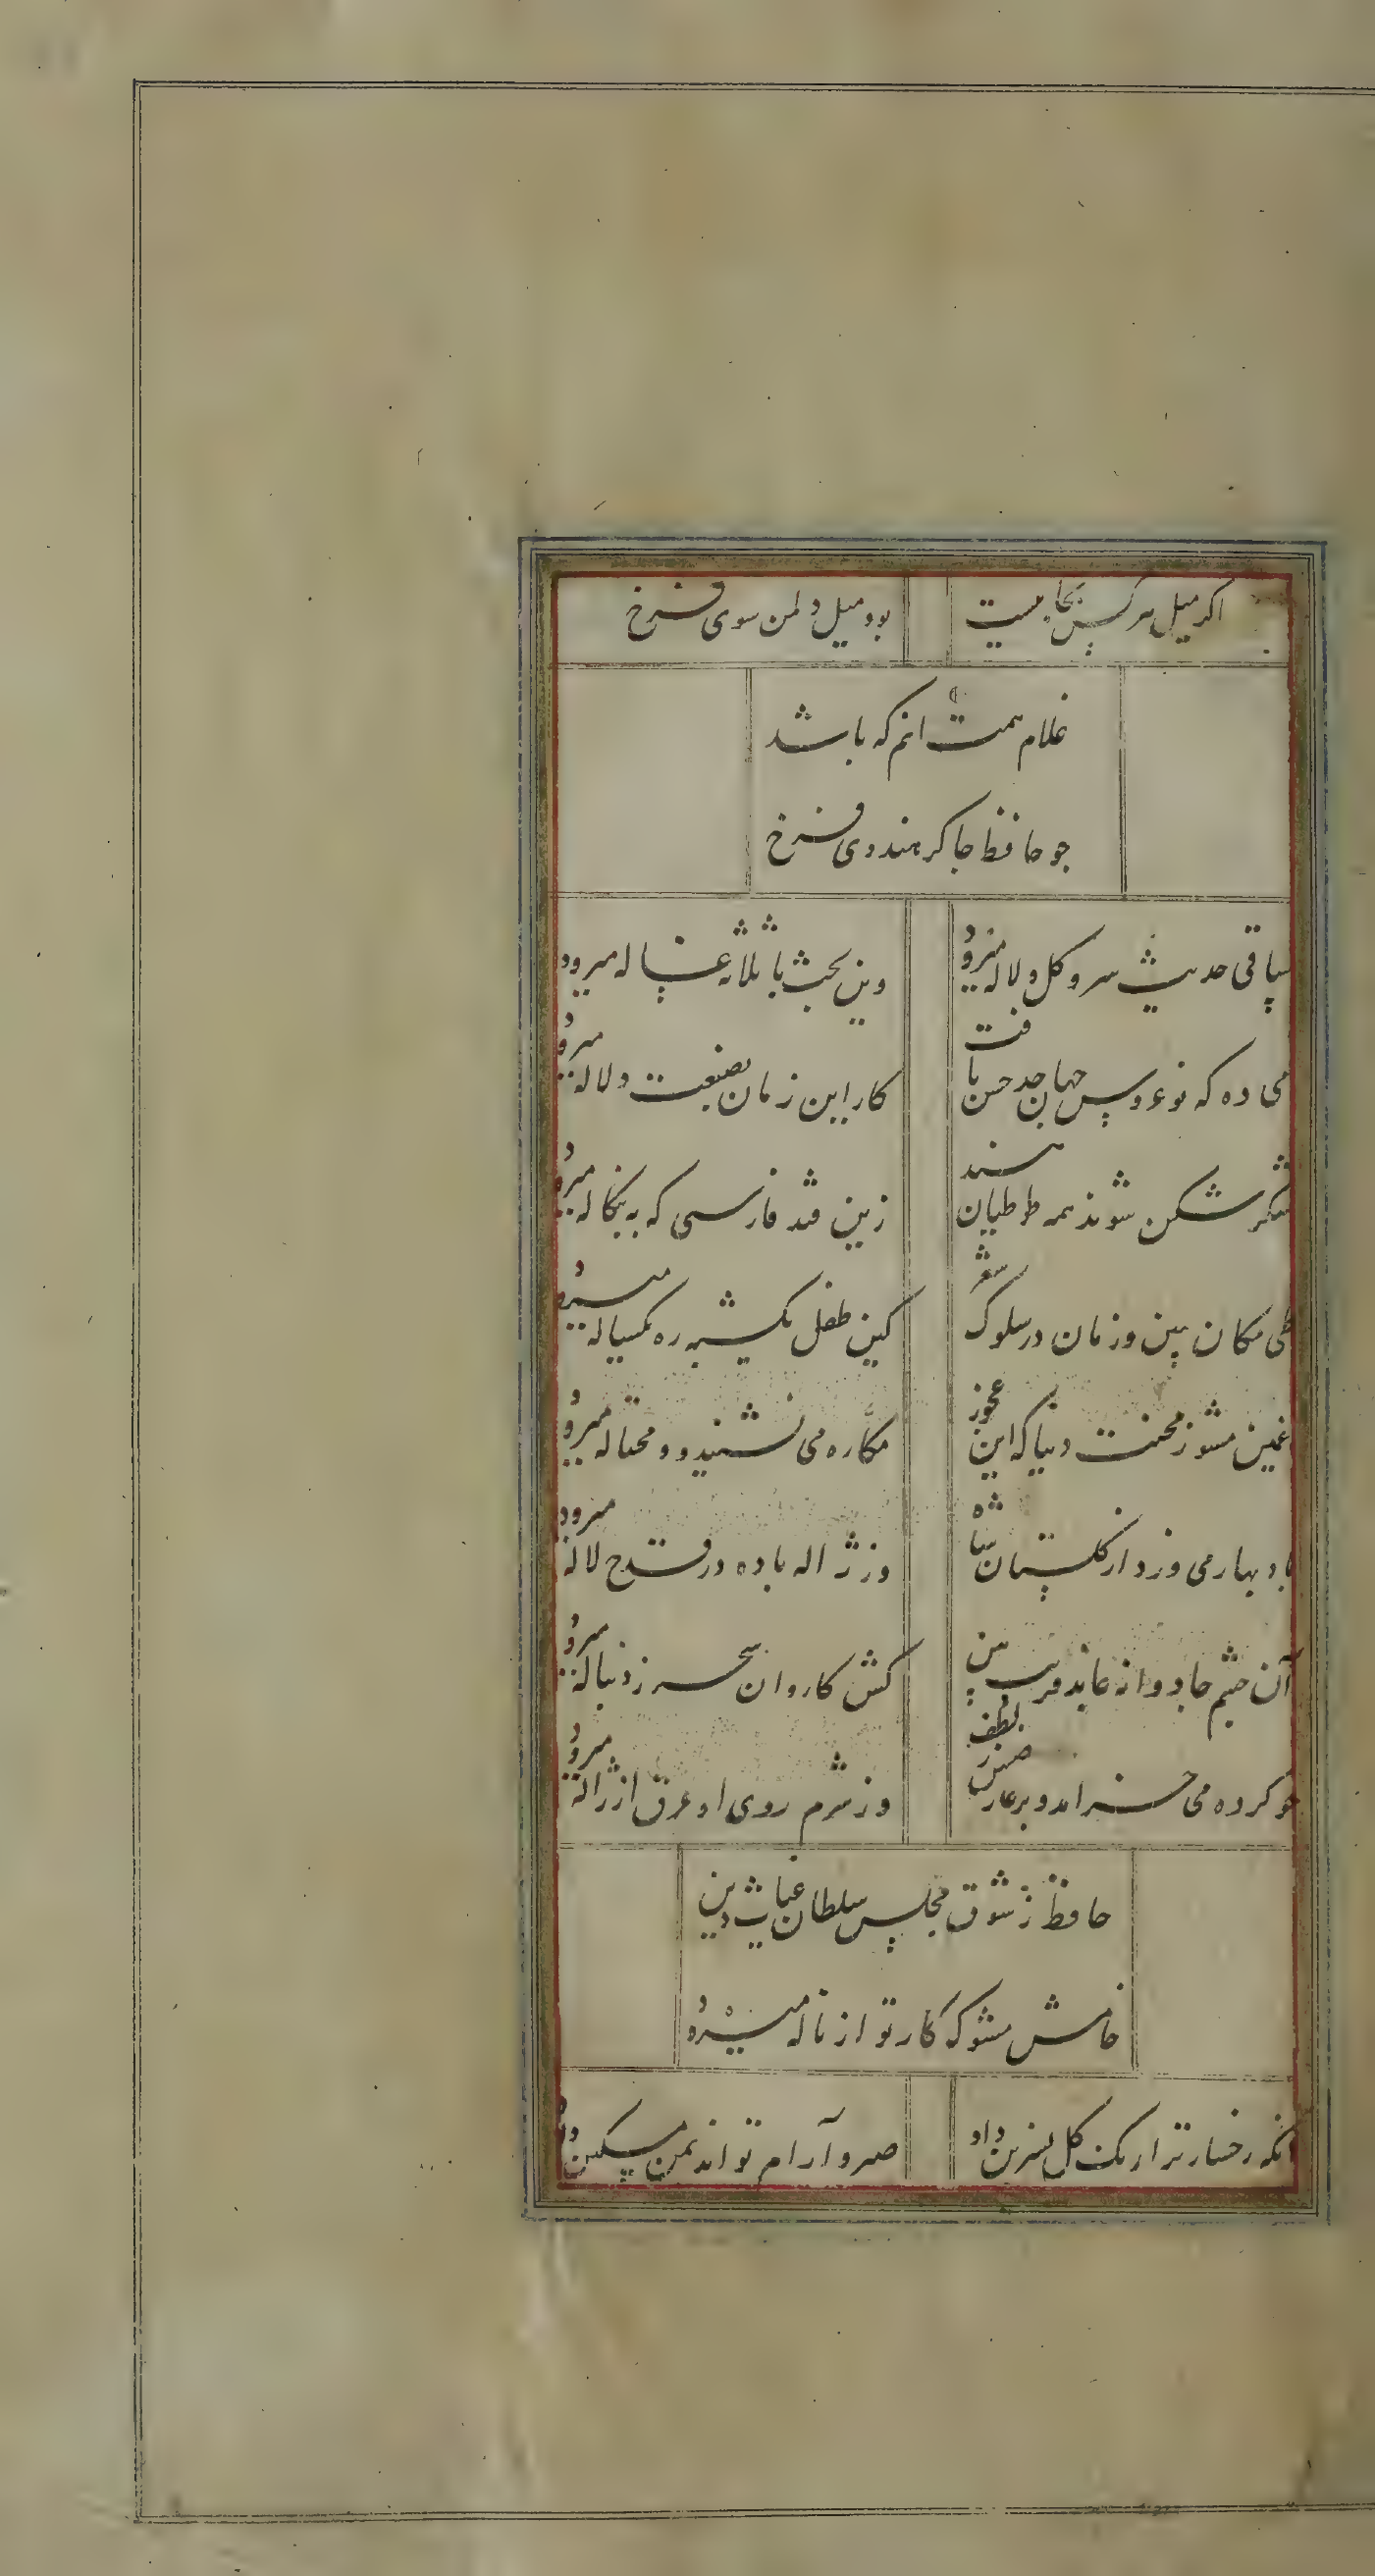 اکر میل هر کس بجاییست بود میل دل من سوی فرخ
غلام همت انم که باشد
جو حافظ جاکر هندوی فرخ
ساقی حدیث سرو کل و لاله میرود وین بحث با ثلاثه غساله میرود
می ده که نوعروس جهان حد حسن یافت کار این زمان بصنعت دلاله میرود
شکر شکن شوند همه طوطیان هند زین قند فارسی که به بنکاله میرود
طی مکان ببین و زمان در سلوک شعر کین طفل یکشبه ره یکساله میرود
غمین مشو ز محنت دنیا که این عجوز مکاره می نشیند و محتاله میرود
باد بهار می وزد از کلستان شاه وز ژاله باده در قدح لاله میرود
آن جشم جادوانه عابد فریب بین کش کاروان سحر ز دنباله میرود
خو کرده می خرامد و بر عارض لطف وز شرم روی او عرق از ژاله میرود
حافظ ز شوق مجلس سلطان غیاث دین
خامش مشو که کار تو از ناله میرود
انکه رخسار ترا رنک کل نسرین داد صبر و آرام تواند بمن مسکین داد